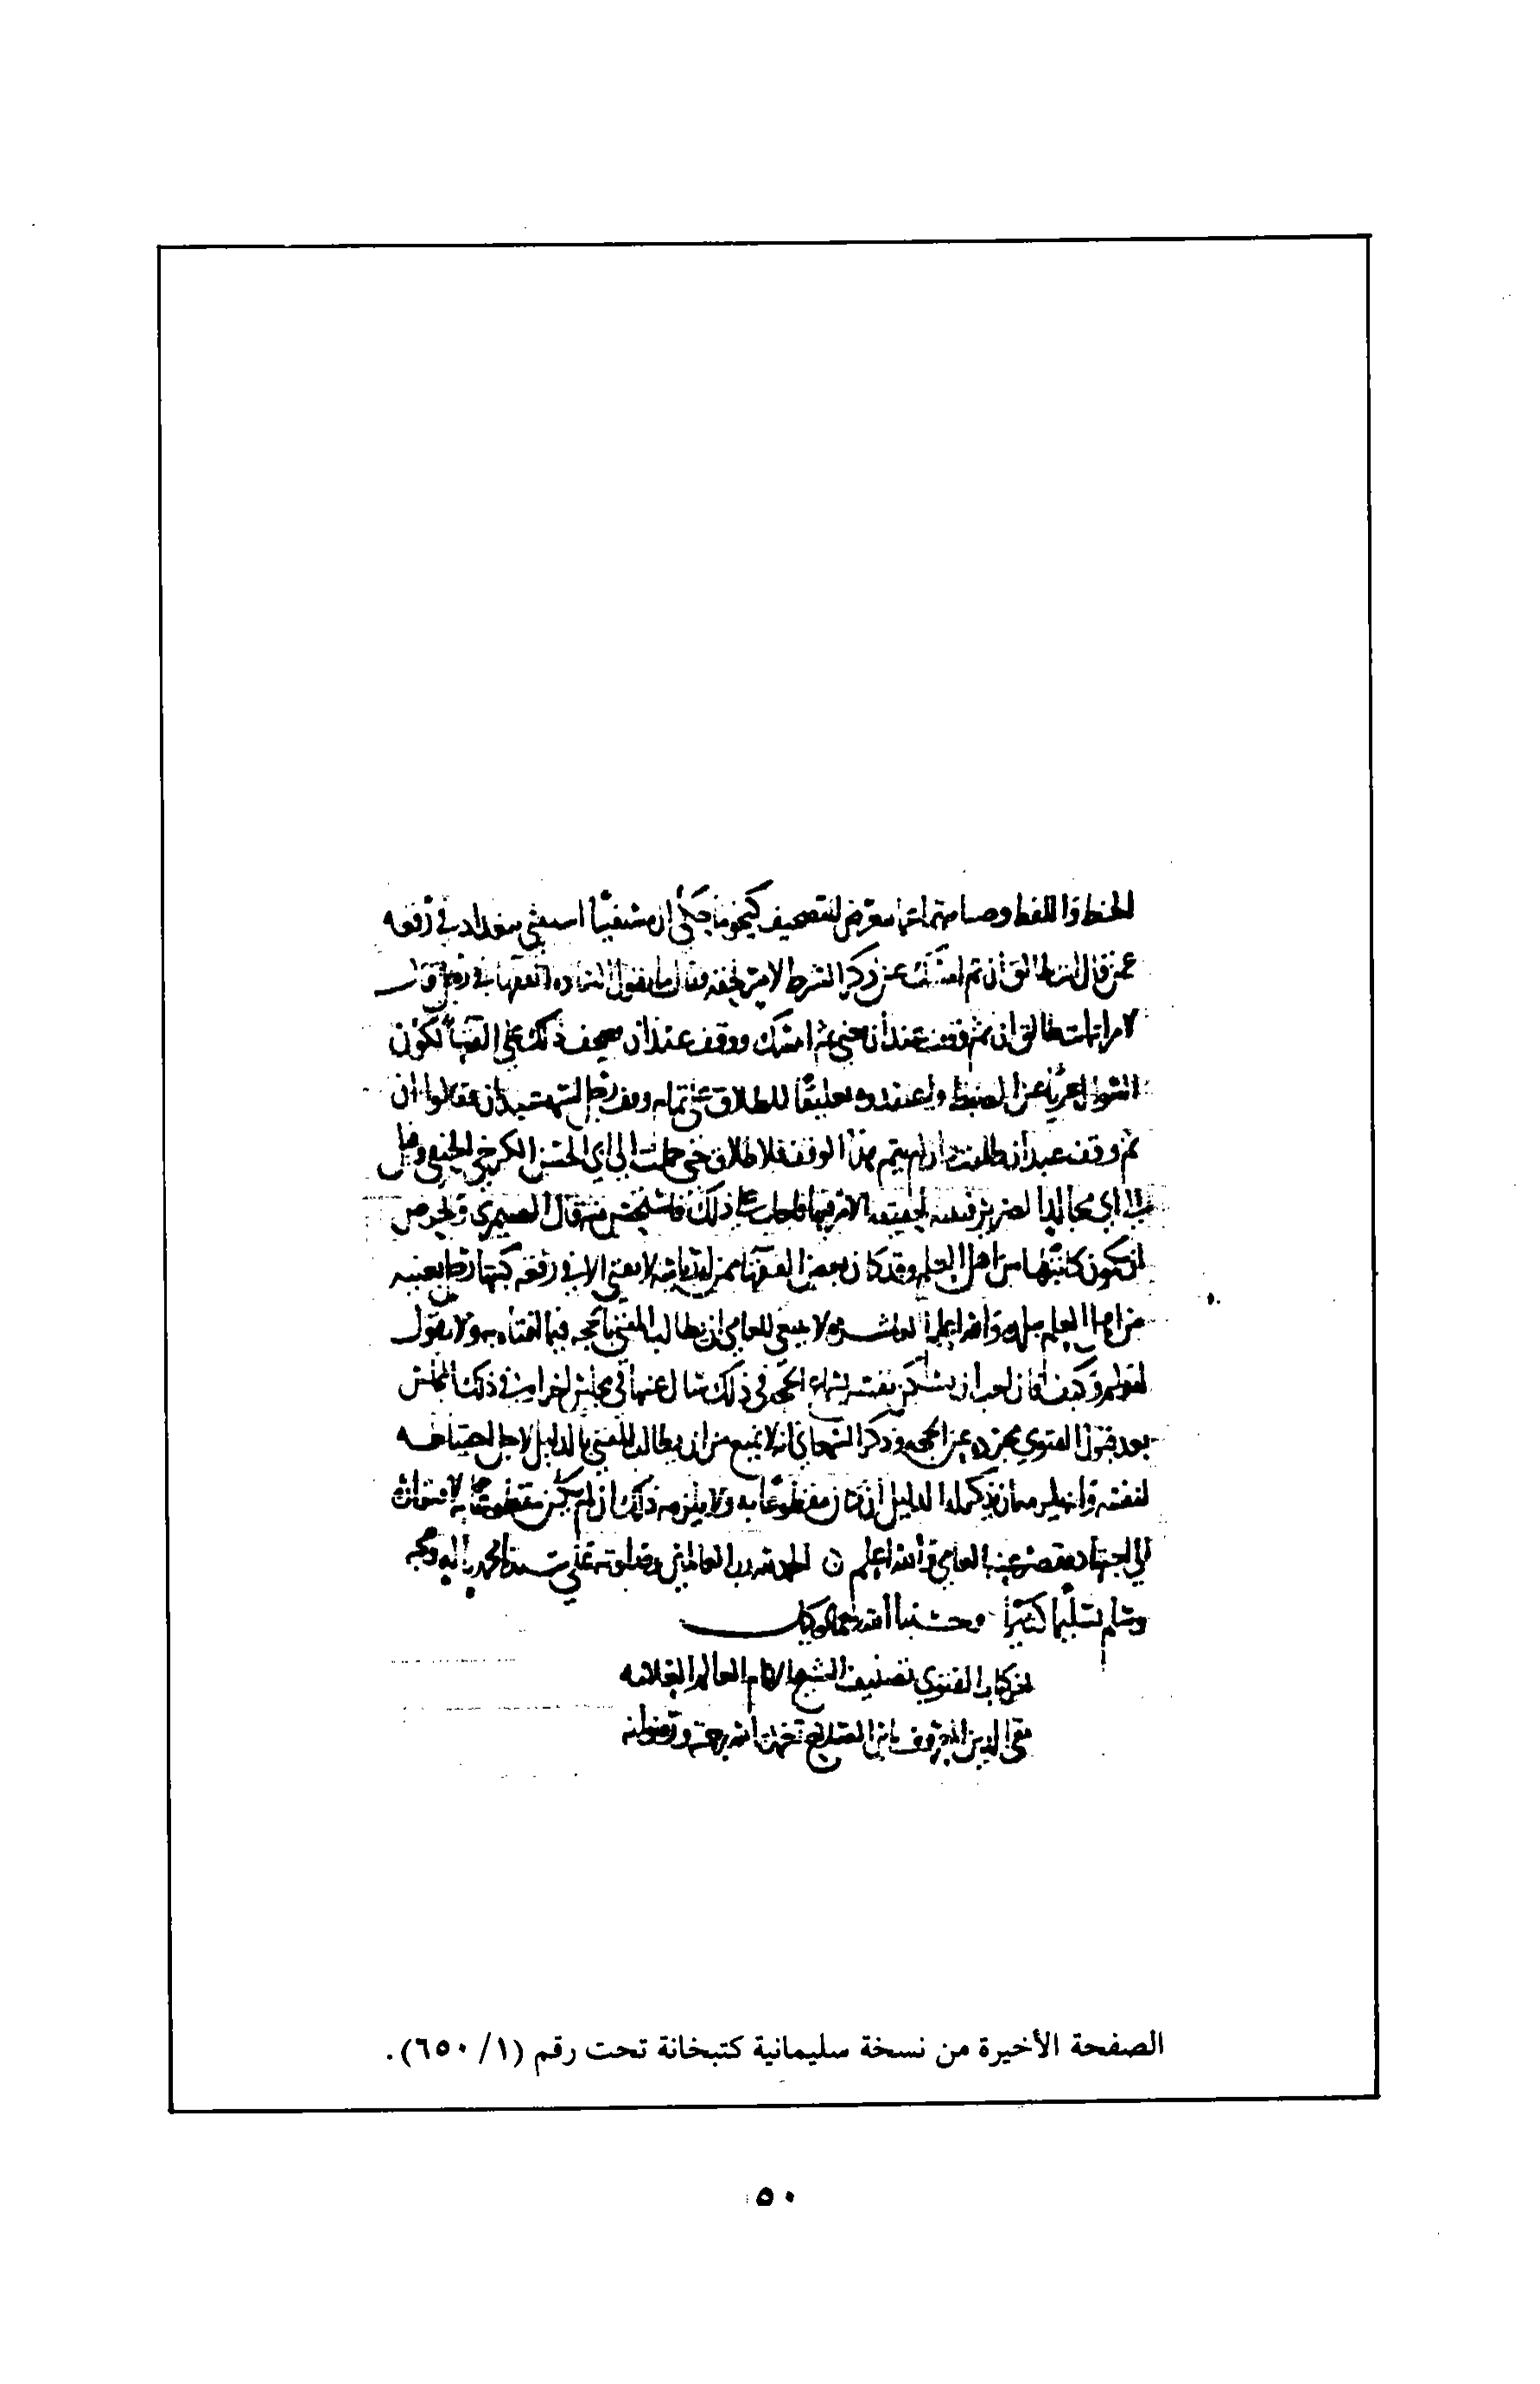 الخط واللفظ وصيانتهما عما يتعرض للتصحيف كنحو ما حكي أن مستفتيا استفتى ببغداد في رقعة
عمن قال أنت طالق إن ثم أمسك عن ذكر الشرط لأمر لحقه فقال ما يقول السادة الفقهاء في رجل قال
لامرأته أنت طالق إن ثم وقف عند إن يعني ثم أمسك ووقف عند إن فصحف ذلك على الفقهاء لكون
السؤال عريا عن الضبط واعتقدوه تعليقا للطلاق على تمام وقف رجل اسمه عبدان فقالوا إن
تم وقف عبدان طلقت وإن لم يتم هذا الوقف فلا طلاق حتى حملت إلى أبي الحسن الكرخي الحنفي وقيل
إلى أبي مجالد الضرير فتنبه لحقيقة الأمر فيها فأجاب على ذلك فاستحسن منه قال الصيمري ويحرص
أن يكون كاتبها من أهل العلم وقد كان بعض الفقهاء ممن له رياسة لا يفتي إلا في رقعة كتبها رجل بعينه
من أهل العلم ببلده والله أعلم العاشرة لا ينبغي للعامي أن يطالب المفتي بالحجة فيما أفتاه به ولا يقول
لم وكيف فإن أحب أن تسكن نفسه بسماع الحجة في ذلك سأل عنها في مجلس آخر أو في ذلك المجلس
بعد قبول الفتوى مجردة عن الحجة وذكر السمعاني أنه لا يمنع من أن يطالب المفتي بالدليل لأجل احتياطه
لنفسه وأنه يلزمه أن يذكر له الدليل إن كان مقطوعا به ولا يلزمه ذلك إن لم يكن مقطوعا به لافتقاره
إلى اجتهاد يقصر عنه العامي والله أعلم ن الحمد لله رب العالمين وصلواته على سيدنا محمد وآله وصحبه
وسلم تسليما كثيرا وحسبنا الله ونعم الوكيل
آخر كتاب الفتوى تصنيف الشيخ الإمام العالم العلامة
تقي الدين المعروف بابن الصلاح تغمده الله برحمته ورضوانه
الصفحة الأخيرة من نسخة سليمانية كتبخانة تحت رقم (١/ ٦٥٠).
٥٠